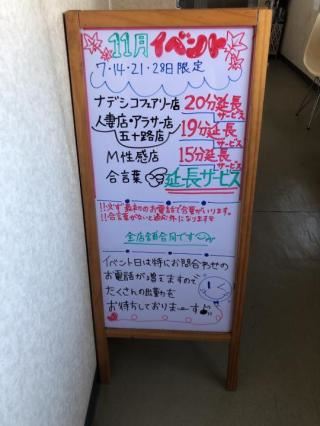 11月イベント
7・14・21・28日限定
ナデシコフェアリー店 20分延長サービス
人妻店・アラサー店
五十路店 19分延長サービス
M性感店 15分延長サービス
合言葉 延長サービス
!!必ず最初のお電話で合言葉がいります。
!!合言葉がないと適応外になります
全店舗合同です
イベント日は特にお問合わせの
お電話が増えますので
たくさんの出勤を
お待ちしておりまーす